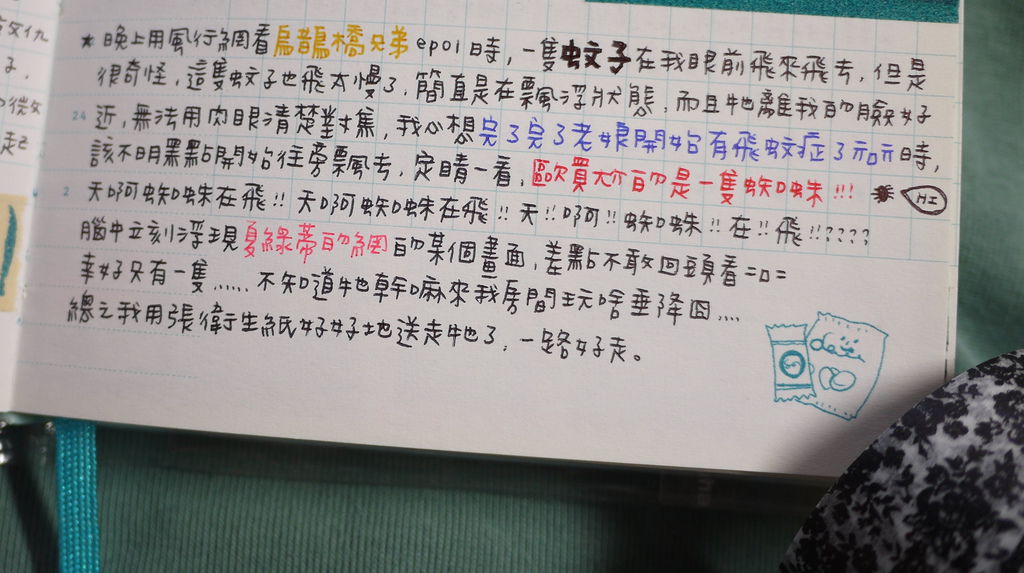 ★晚上用風行網看烏鵲橋兄弟ep01時,一隻蚊子在我眼前飛來飛去,但是
很奇怪,這隻蚊子也飛太慢了,簡直是在飄浮狀態,而且牠離我的臉好
24 近,無法用肉眼清楚對焦,我心想完了完了老娘開始有飛蚊症了時,
該不明黑點開始往旁飄去,定睛一看,歐買尬的是一隻蜘蛛!!! HI
2 天啊蜘蛛在飛!! 天啊蜘蛛在飛!! 天!!啊!!蜘蛛!!在!!飛!!????
腦中立刻浮現夏綠蒂的網的某個畫面,差點不敢回頭看=口=
幸好只有一隻......不知道牠幹嘛來我房間玩啥垂降囧....
總之我用張衛生紙好好地送走牠了,一路好走。